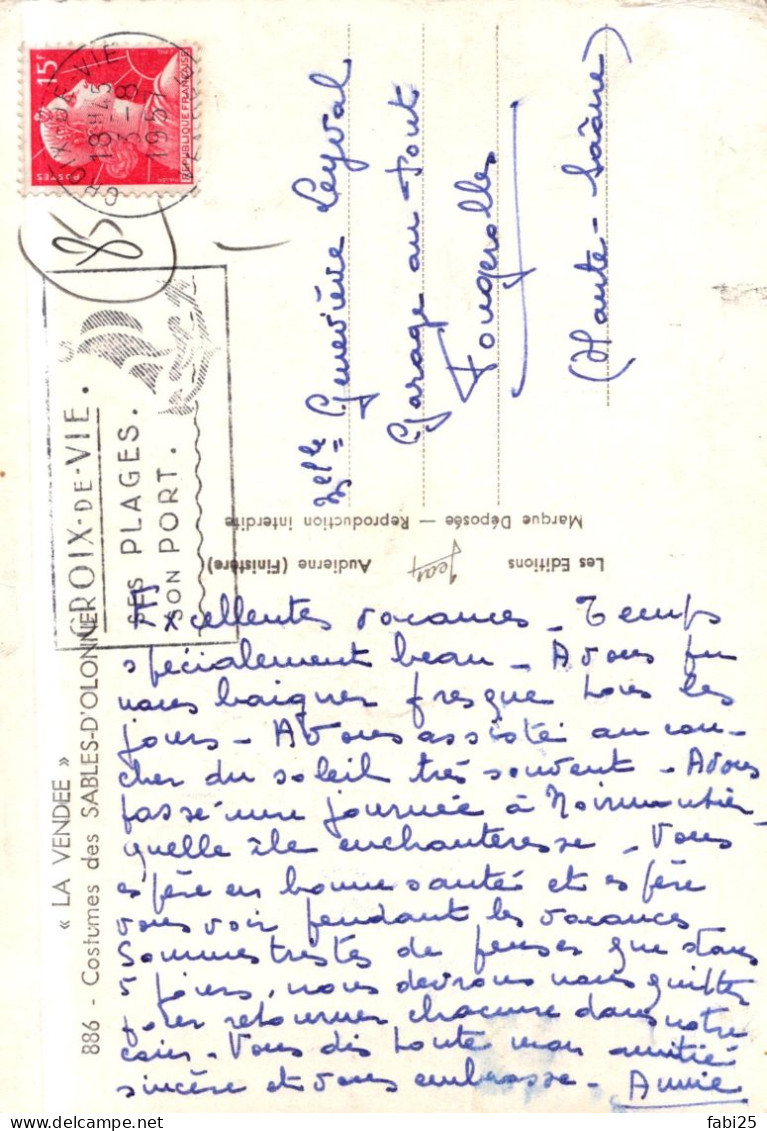 15F
POSTES
REPUBLIQUE FRANÇAISE
CROIX-DE-VIE
18H45
3-8
1957
85
CROIX-DE-VIE.
SES PLAGES.
SON PORT.
« LA VENDEE »
886 - Costumes des SABLES-D'OLONNE
Les Editions Jean Audierne (Finistère)
Marque Déposée — Reproduction interdite
Melle Geneviève Leyval
Garage au Pont
Fougerolles
(Haute-Saône)
Excellentes vacances - Temps
spécialement beau - Avons pu
nous baigner presque tous les
jours - Avons assisté au cou-
cher du soleil très souvent - Avons
passé une journée à Noirmoutier
quelle île enchanteresse - Vous
espère en bonne santé et espère
vous voir pendant les vacances
Sommes tristes de penser que dans
5 jours, nous devrons nous quitter
pour retourner chacune dans notre
coin - Vous dis toute mon amitié
sincère et vous embrasse - Annie
fabi25